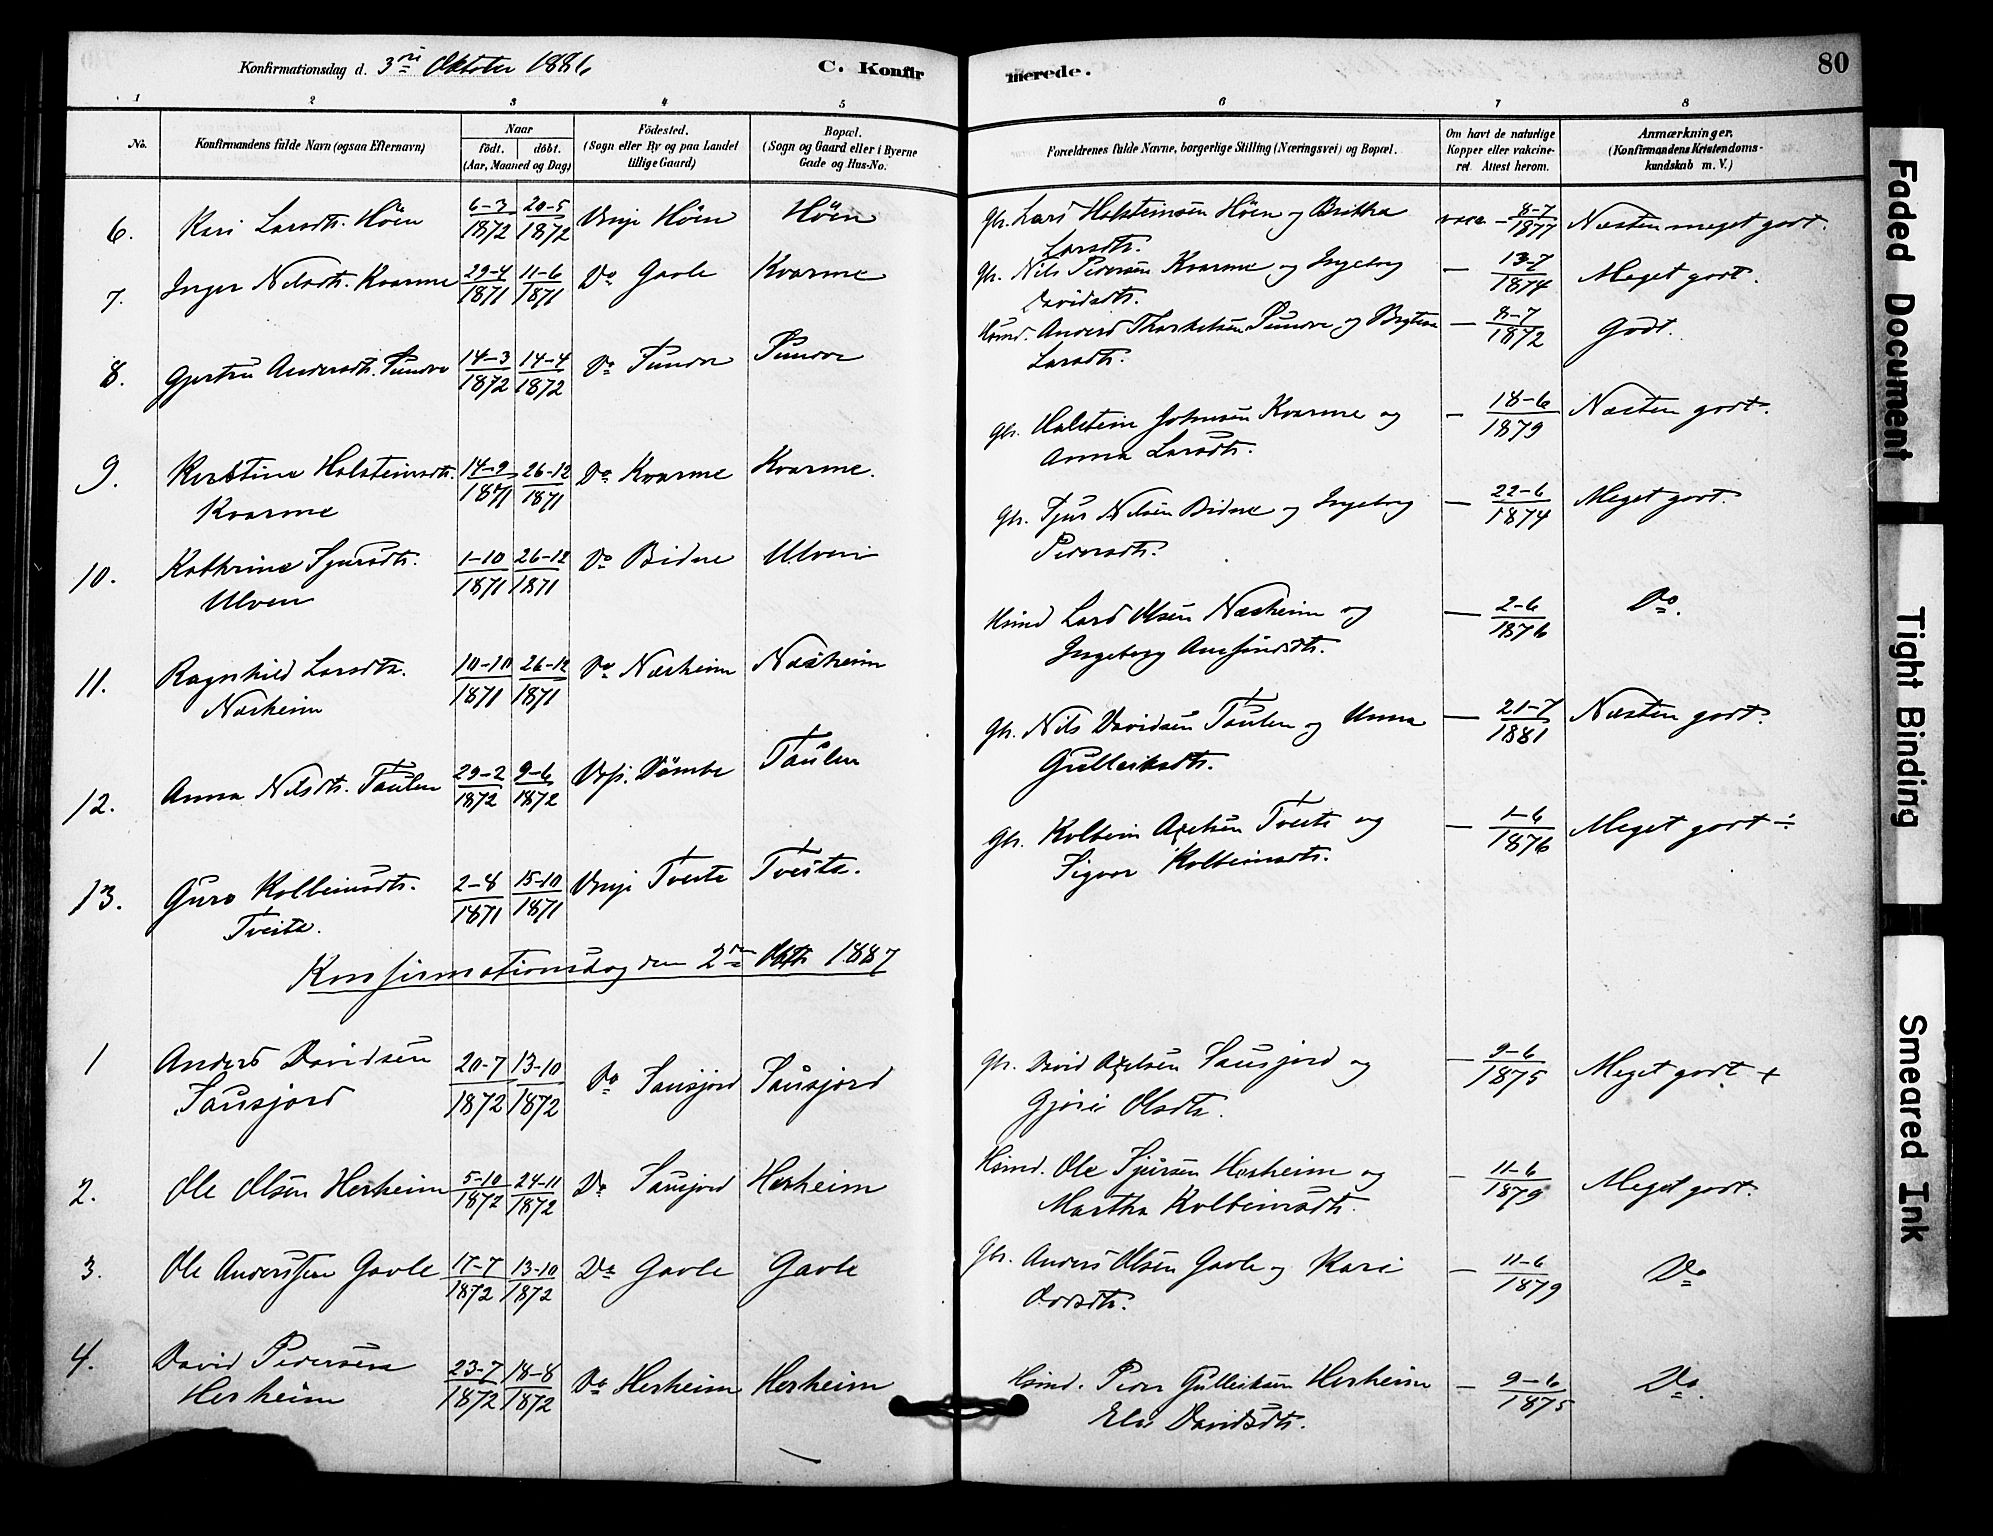 Konfirmationsdag d. 3die Oktober 1886
C. Konfirmerede.
80
1 2 3 4 5 6 7 8
No.
Konfirmandens fulde Navn (ogsaa Efternavn)
Naar
født. døbt.
(Aar, Maaned og Dag)
Fødested.
(Sogn eller By og paa Landet
tillige Gaard)
Bopæl.
(Sogn og Gaard eller i Byerne
Gade og Hus-No.
Forældrenes fulde Navne, borgerlige Stilling (Næringsvei) og Bopæl.
Om havt de naturlige
Kopper eller vakcine-
ret. Attest herom.
Anmærkninger.
(Konfirmandens Kristendoms-
kundskab m. V.)
6. Kari Larsdtr. Höen 6-3 1872 20-5 1872 Vinje Höen Höen Gbr. Lars Holsteinsen Höen og Brittha vacc. 8-7 1877 Næsten meget godt.
Larsdtr.
7. Inger Nilsdtr. Kvarme 29-4 1871 11-6 1871 Do Gavle Kvarme Gbr. Nils Pedersen Kvarme og Ingeborg — 13-7 1874 Meget godt.
Davidsdtr.
8. Gjertru Andersdtr. Sundve 14-3 1872 14-4 1872 Do Sundve Sundve Husmd. Anders Thorkelsen Sundve og — 8-7 1872 Godt.
Larsdtr.
9. Kristine Holsteinsdtr. 14-9 1871 26-12 1871 Do Kvarme Kvarme. Gbr. Holstein Johnsen Kvarme og — 18-6 1879 Næsten godt.
Kvarme Anna Larsdtr.
10. Kathrine Sjursdtr. 1-10 1871 26-12 1871 Do Bidne Ulven Gbr. Sjur Nilsen Bidne og Ingeborg — 22-6 1874 Meget godt.
Ulven Pedersdtr.
11. Ragnhild Larsdtr. 10-10 1871 26-12 1871 Do Næsheim Næsheim Husmd Lars Olsen Næsheim og — 2-6 1876 Do.
Næsheim Ingeborg Amfindsdtr.
12. Anna Nilsdtr. Taulen 29-2 1872 9-6 1872 Dömbe Taulen Gbr. Nils Davidsen Taulen og Unna — 21-7 1881 Næsten godt.
Gulleiksdtr.
13. Guro Kolbeinsdtr. 2-8 1871 15-10 1871 Vinje Tveite Tveite. Gbr. Kolbein Axelsen Tveite og — 1-6 1876 Meget godt ÷
Tveite. Sigvor Kolbeinsdtr.
Konfirmationsdag den 2den Oktb 1887
1 Anders Davidsen 20-7 1872 13-10 1872 Do Sausjord Sausjord Gbr. David Axelsen Sausjord og — 9-6 1875 Meget godt +
Sausjord Gjöri Olsdtr.
2. Ole Olsen Herheim 5-10 1872 24-11 1872 Do Sausjord Herheim Husmd. Ole Sjursen Herheim og — 11-6 1879 Meget godt.
Martha Kolbeinsdtr.
3. Ole Anderssen Gavle 17-7 1872 13-10 1872 Do Gavle Gavle Gbr. Anders Olsen Gavle og Kari — 11-6 1879 Do
4. David Pedersen 23-7 1872 18-8 1872 Do Herheim Herheim Husmd. Peder Gulleiksen Herheim — 9-6 1875 Do.
Herheim Davidsdtr.
Faded Document
Tight Binding
Smeared Ink